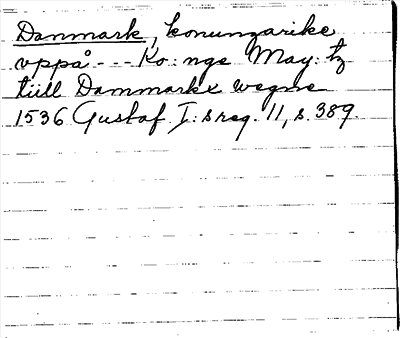 Danmark, konungarike
vppå --- Ko: nge May: tz
tiill Dammarkx wegne
1536 Gustaf I: s reg. 11, s. 389.